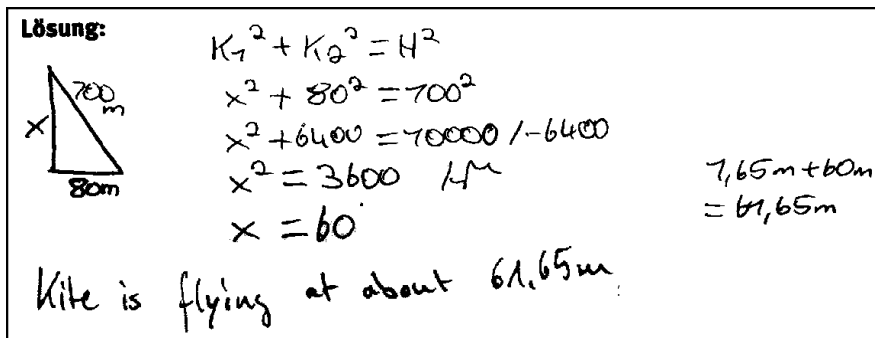 Lösung:
K₁² + K₂² = H²
100 m
x
80m
x² + 80² = 100²
x² + 6400 = 10000 /-6400
x² = 3600 /√
x = 60
1,65m + 60m
= 61,65m
Kite is flying at about 61,65m